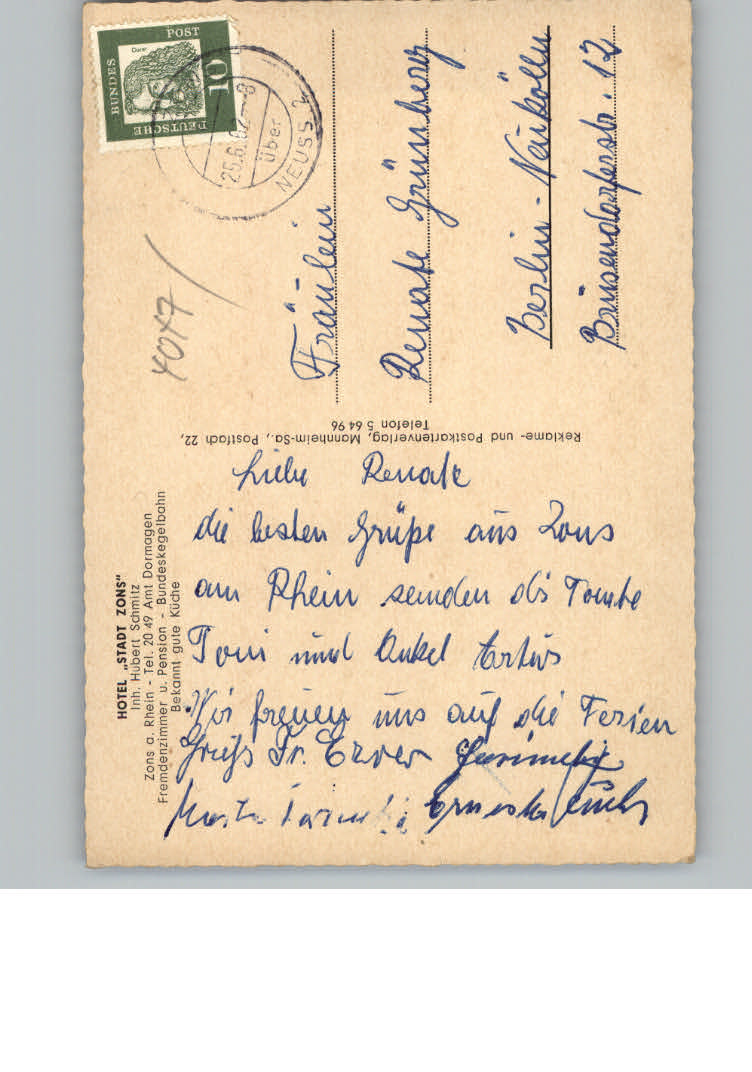 HOTEL „STADT ZONS"
Inh. Hubert Schmitz
Zons a. Rhein - Tel. 20 49 Amt Dormagen
Fremdenzimmer u. Pension - Bundeskegelbahn
Bekannt gute Küche
Liebe Renate
die besten Grüße aus Zons
am Rhein senden dir Tante
Toni und Onkel
Wir freuen uns auf die Ferien
Gruß Fr.
Reklame- und Postkartenverlag, Mannheim-Sa., Postfach 22,
Telefon 5 64 96
DEUTSCHE
BUNDES
POST
Dürer
10
25.6.62-8
über
NEUSS 2
Fräulein
Renate Grünberg
Berlin-Neukölln
Brusendorferstr. 12